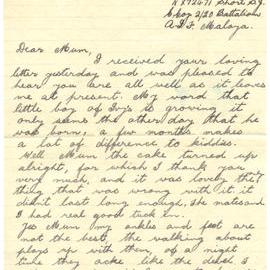 NX72671 Short S.J.
C Coy 2/20 Battalion
A.I.F. Malaya.
Dear Mum,
I received your loving
letter yesterday and was pleased to
hear you are all well as it leaves
me at present. My word that
little boy of is growing it
only seems the other day that he
was born, a few months makes
a lot of difference to kiddies.
Well Mum the cake turned up
alright, for which I thank you
very much, and it was lovely the
thing that was wrong with it it
didn't last long enough, the mates and
I had a real good tuck in.
Yes Mum my ankles and feet are
not the best, the walking about
plays up with them, of a night
time they ache like the devil I